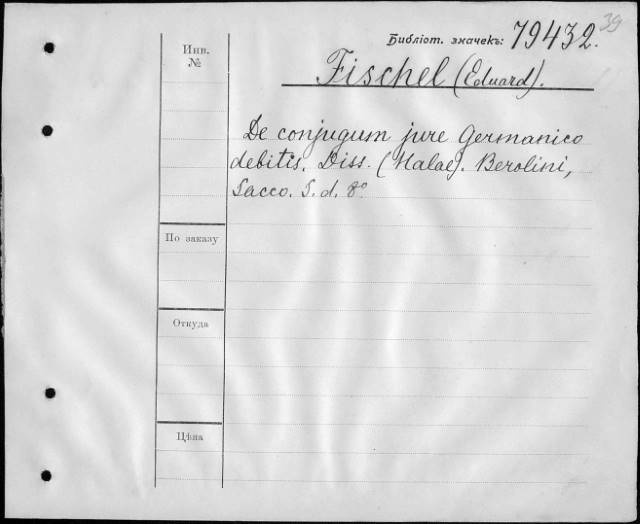 39
Библіот. значекъ: 79432.
Инв.
№
Fischel (Eduard).
De conjugum jure Germanico
debitis. Diss. (Halae). Berolini,
Sacco. S. d. 8º
По заказу
Откуда
Цѣна